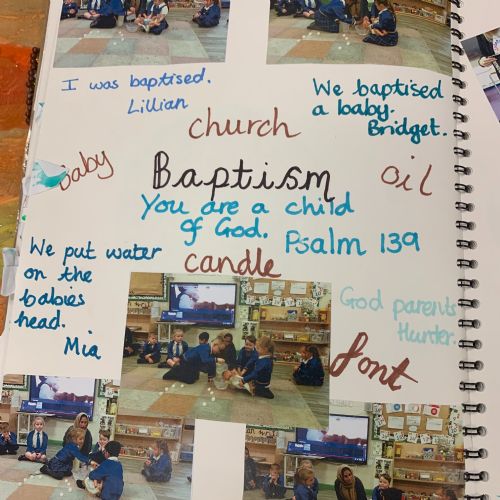 I was baptised.
Lillian
We baptised
a baby.
Bridget.
church
baby
Baptism
oil
You are a child
of God.
Psalm 139
We put water
on the
babies
head.
Mia
candle
God parents
Hunter.
font